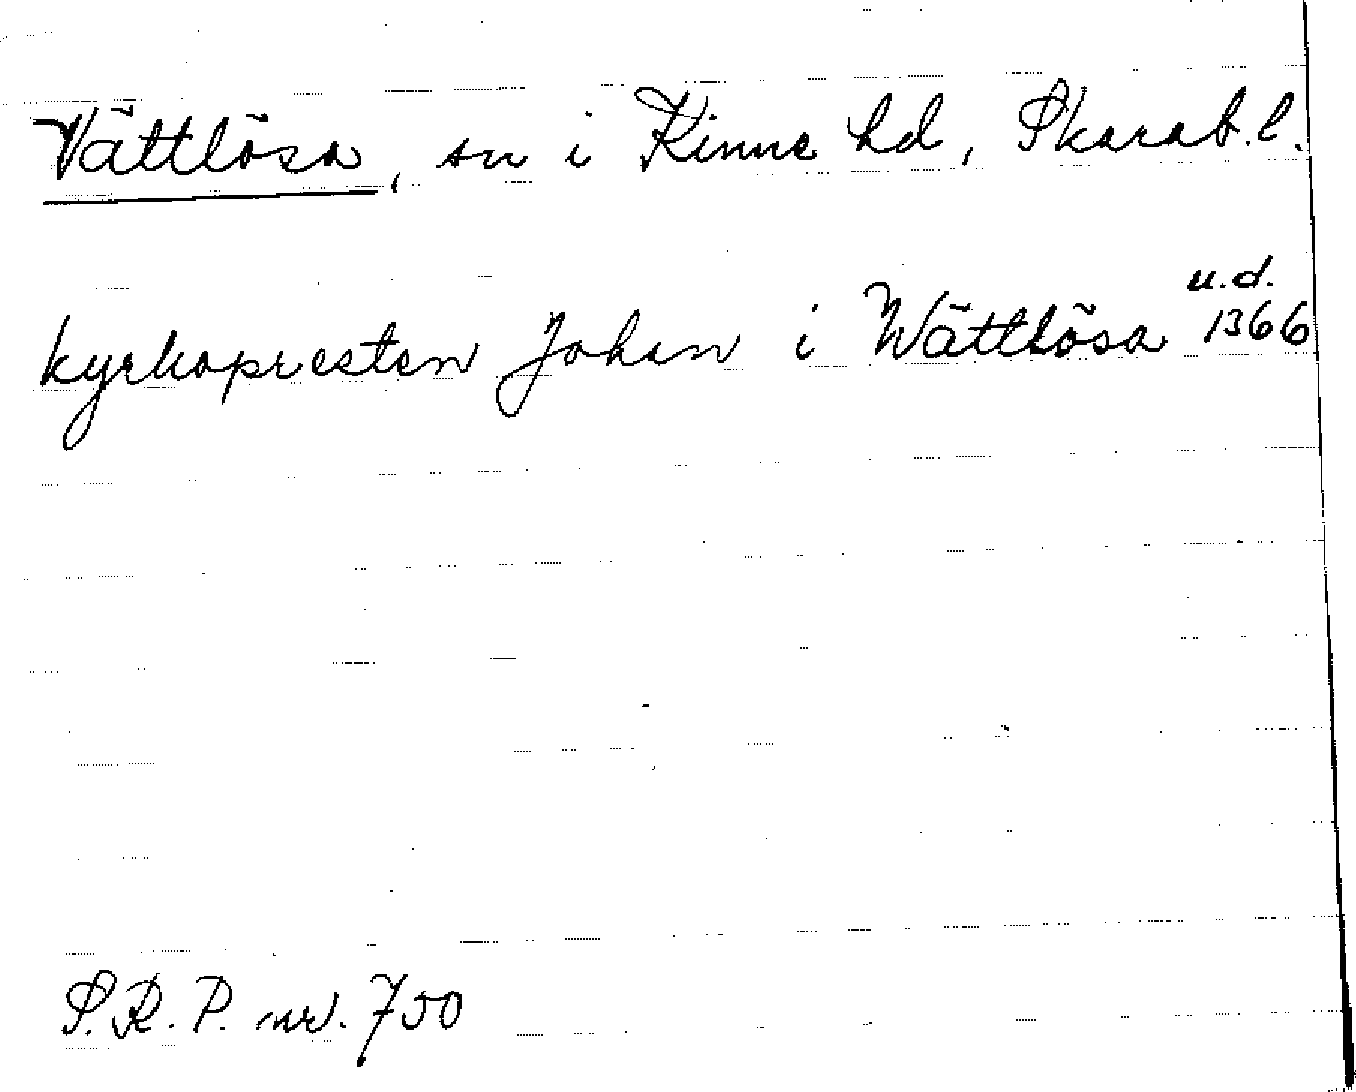 Vättlösa, sn i Kinne hd, Skarab.l.
kyrkopresten Johan i Wättlösa u.d. 1366
S.R.P. nr. 750